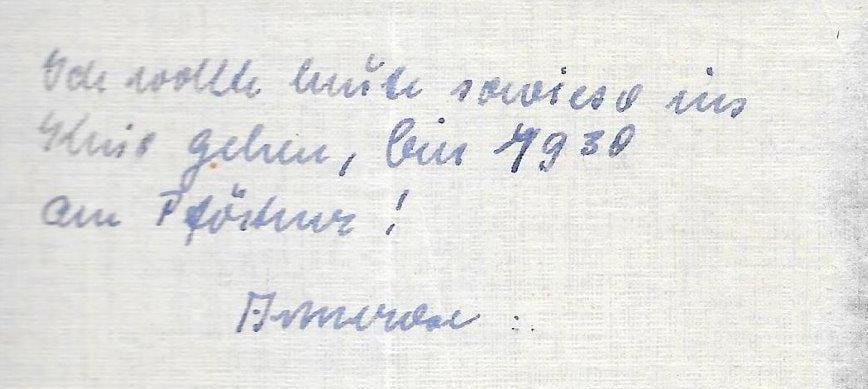 Ich wollte heute sowieso ins
Kino gehen, bin 1930
am Pförtner!
Annerose